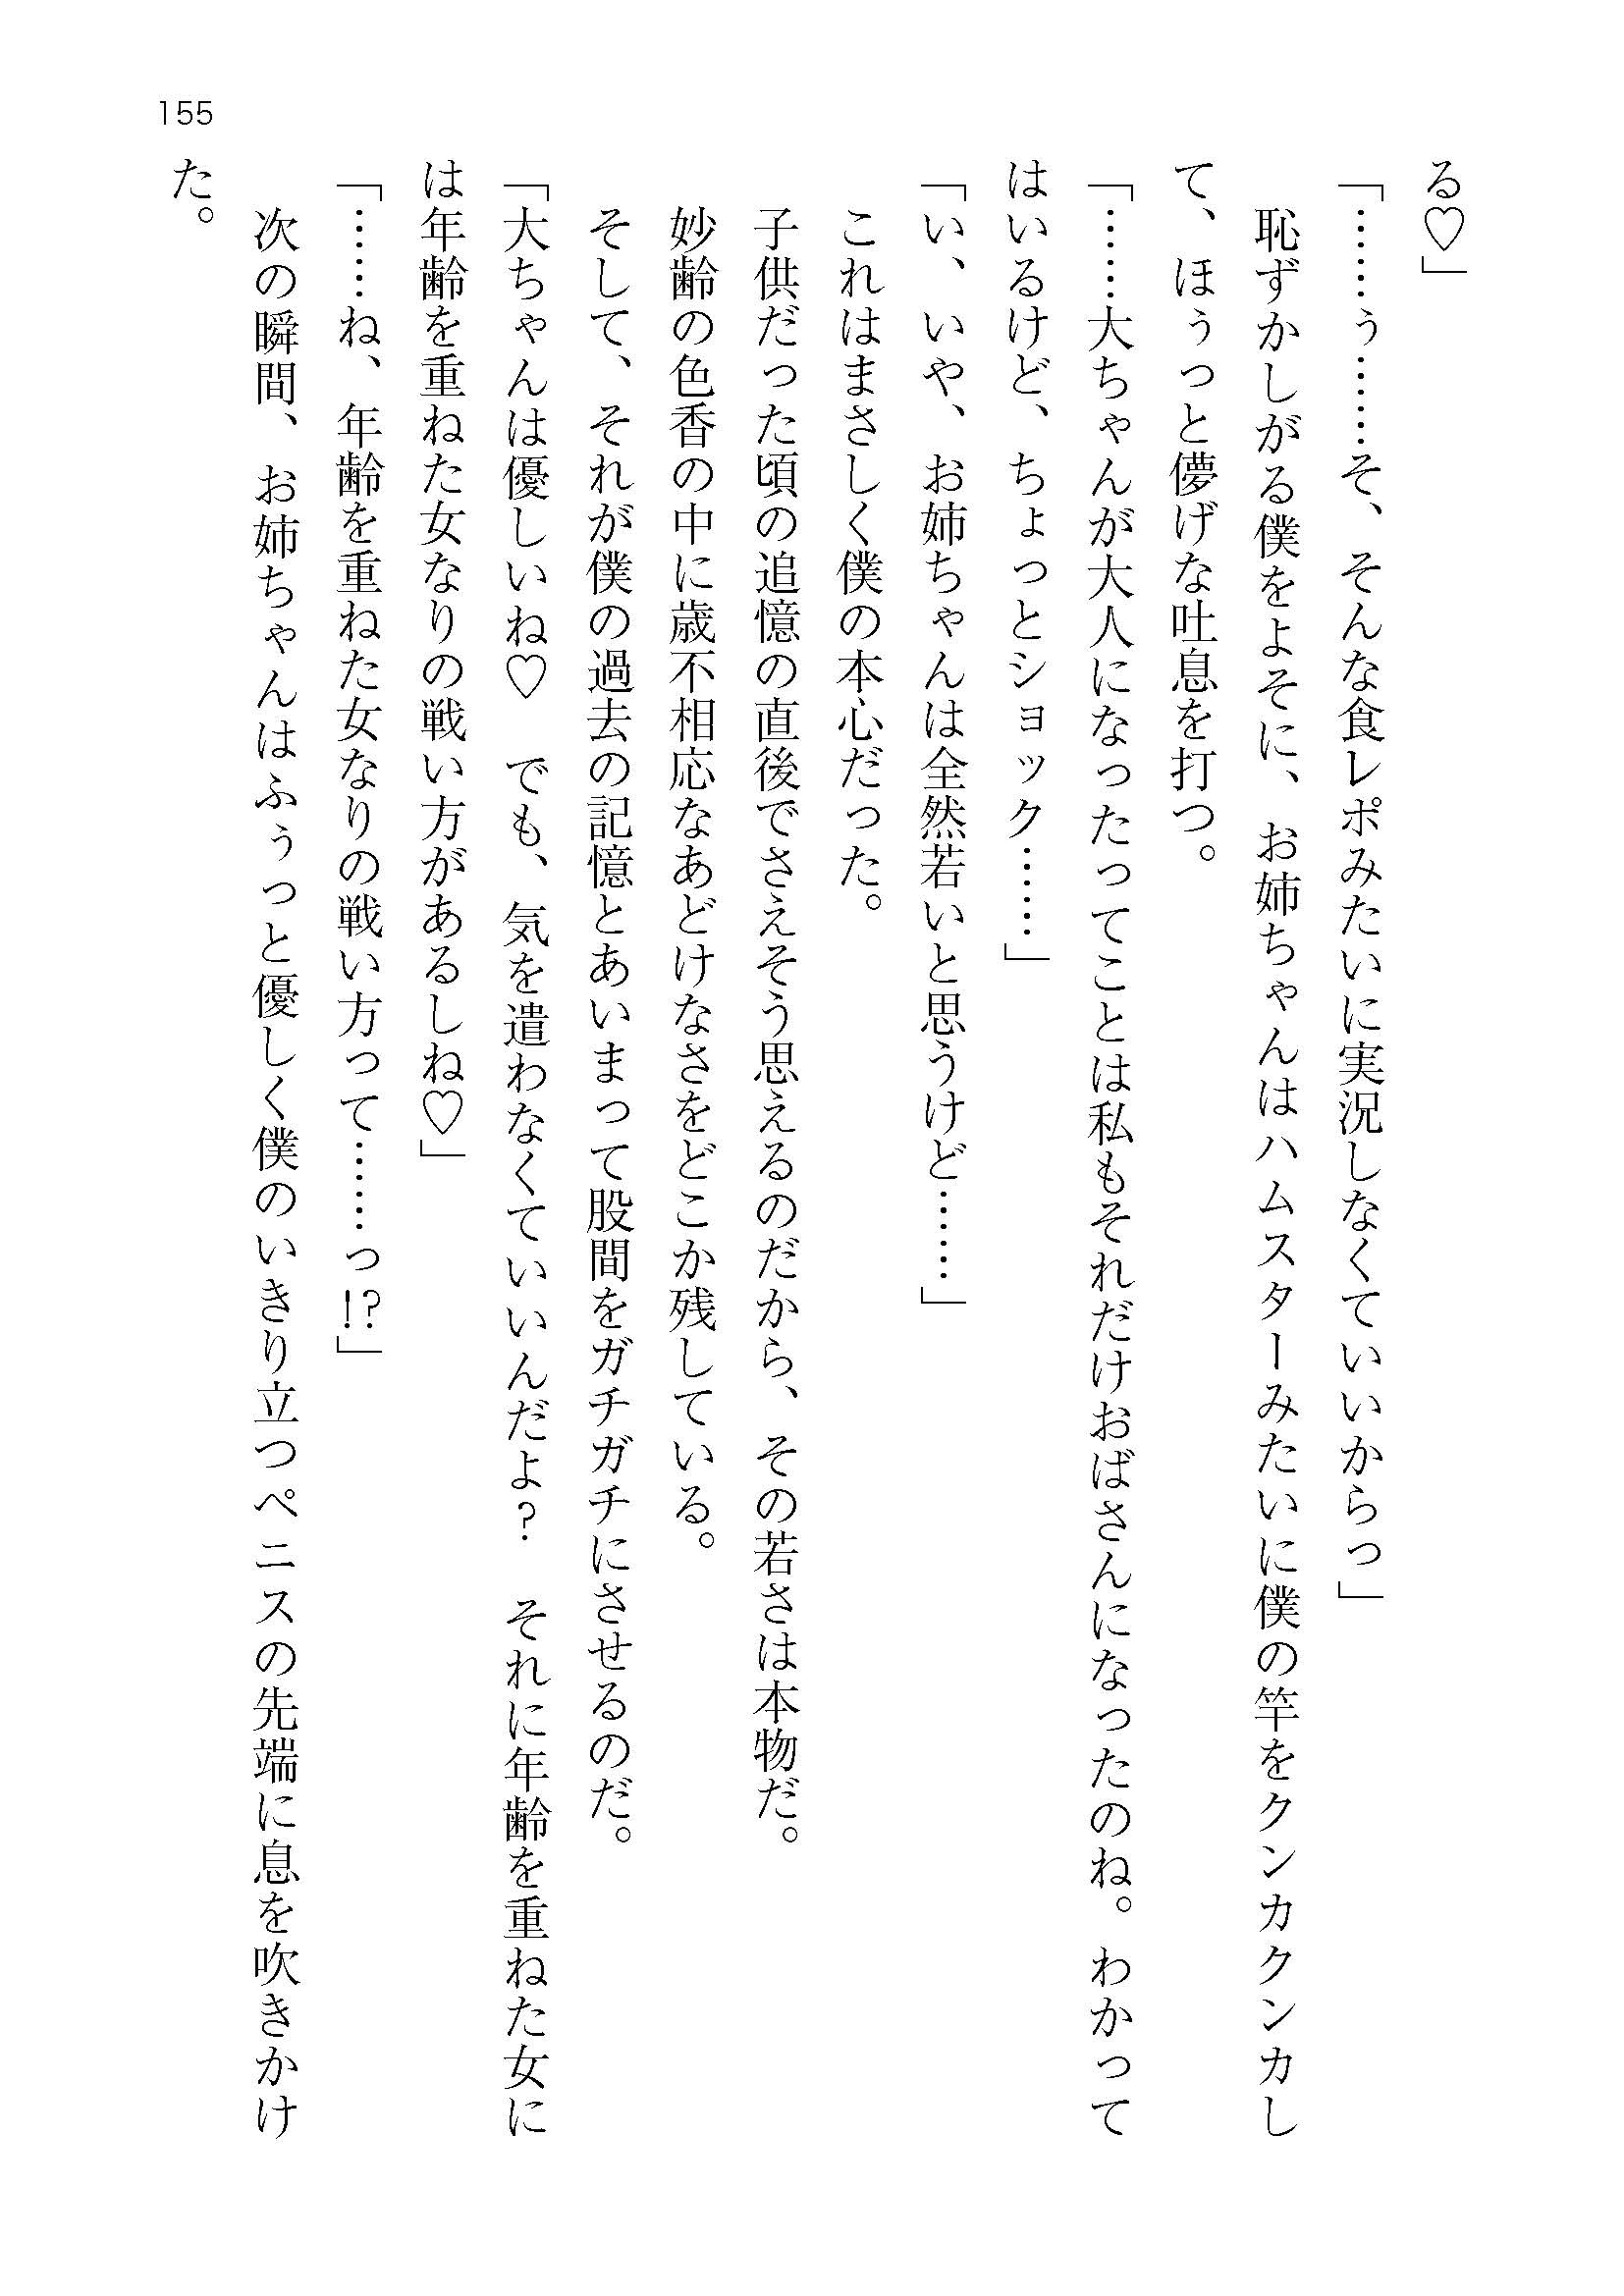 155
る♡」
「……う……そ、そんな食レポみたいに実況しなくていいからっ」
　恥ずかしがる僕をよそに、お姉ちゃんはハムスターみたいに僕の竿をクンカクンカし
て、ほぅっと儚げな吐息を打つ。
「……大ちゃんが大人になったってことは私もそれだけおばさんになったのね。わかって
はいるけど、ちょっとショック……」
「い、いや、お姉ちゃんは全然若いと思うけど……」
　これはまさしく僕の本心だった。
　子供だった頃の追憶の直後でさえそう思えるのだから、その若さは本物だ。
　妙齢の色香の中に歳不相応なあどけなさをどこか残している。
　そして、それが僕の過去の記憶とあいまって股間をガチガチにさせるのだ。
「大ちゃんは優しいね♡　でも、気を遣わなくていいんだよ？　それに年齢を重ねた女に
は年齢を重ねた女なりの戦い方があるしね♡」
「……ね、年齢を重ねた女なりの戦い方って……っ!?」
　次の瞬間、お姉ちゃんはふぅっと優しく僕のいきり立つペニスの先端に息を吹きかけ
た。